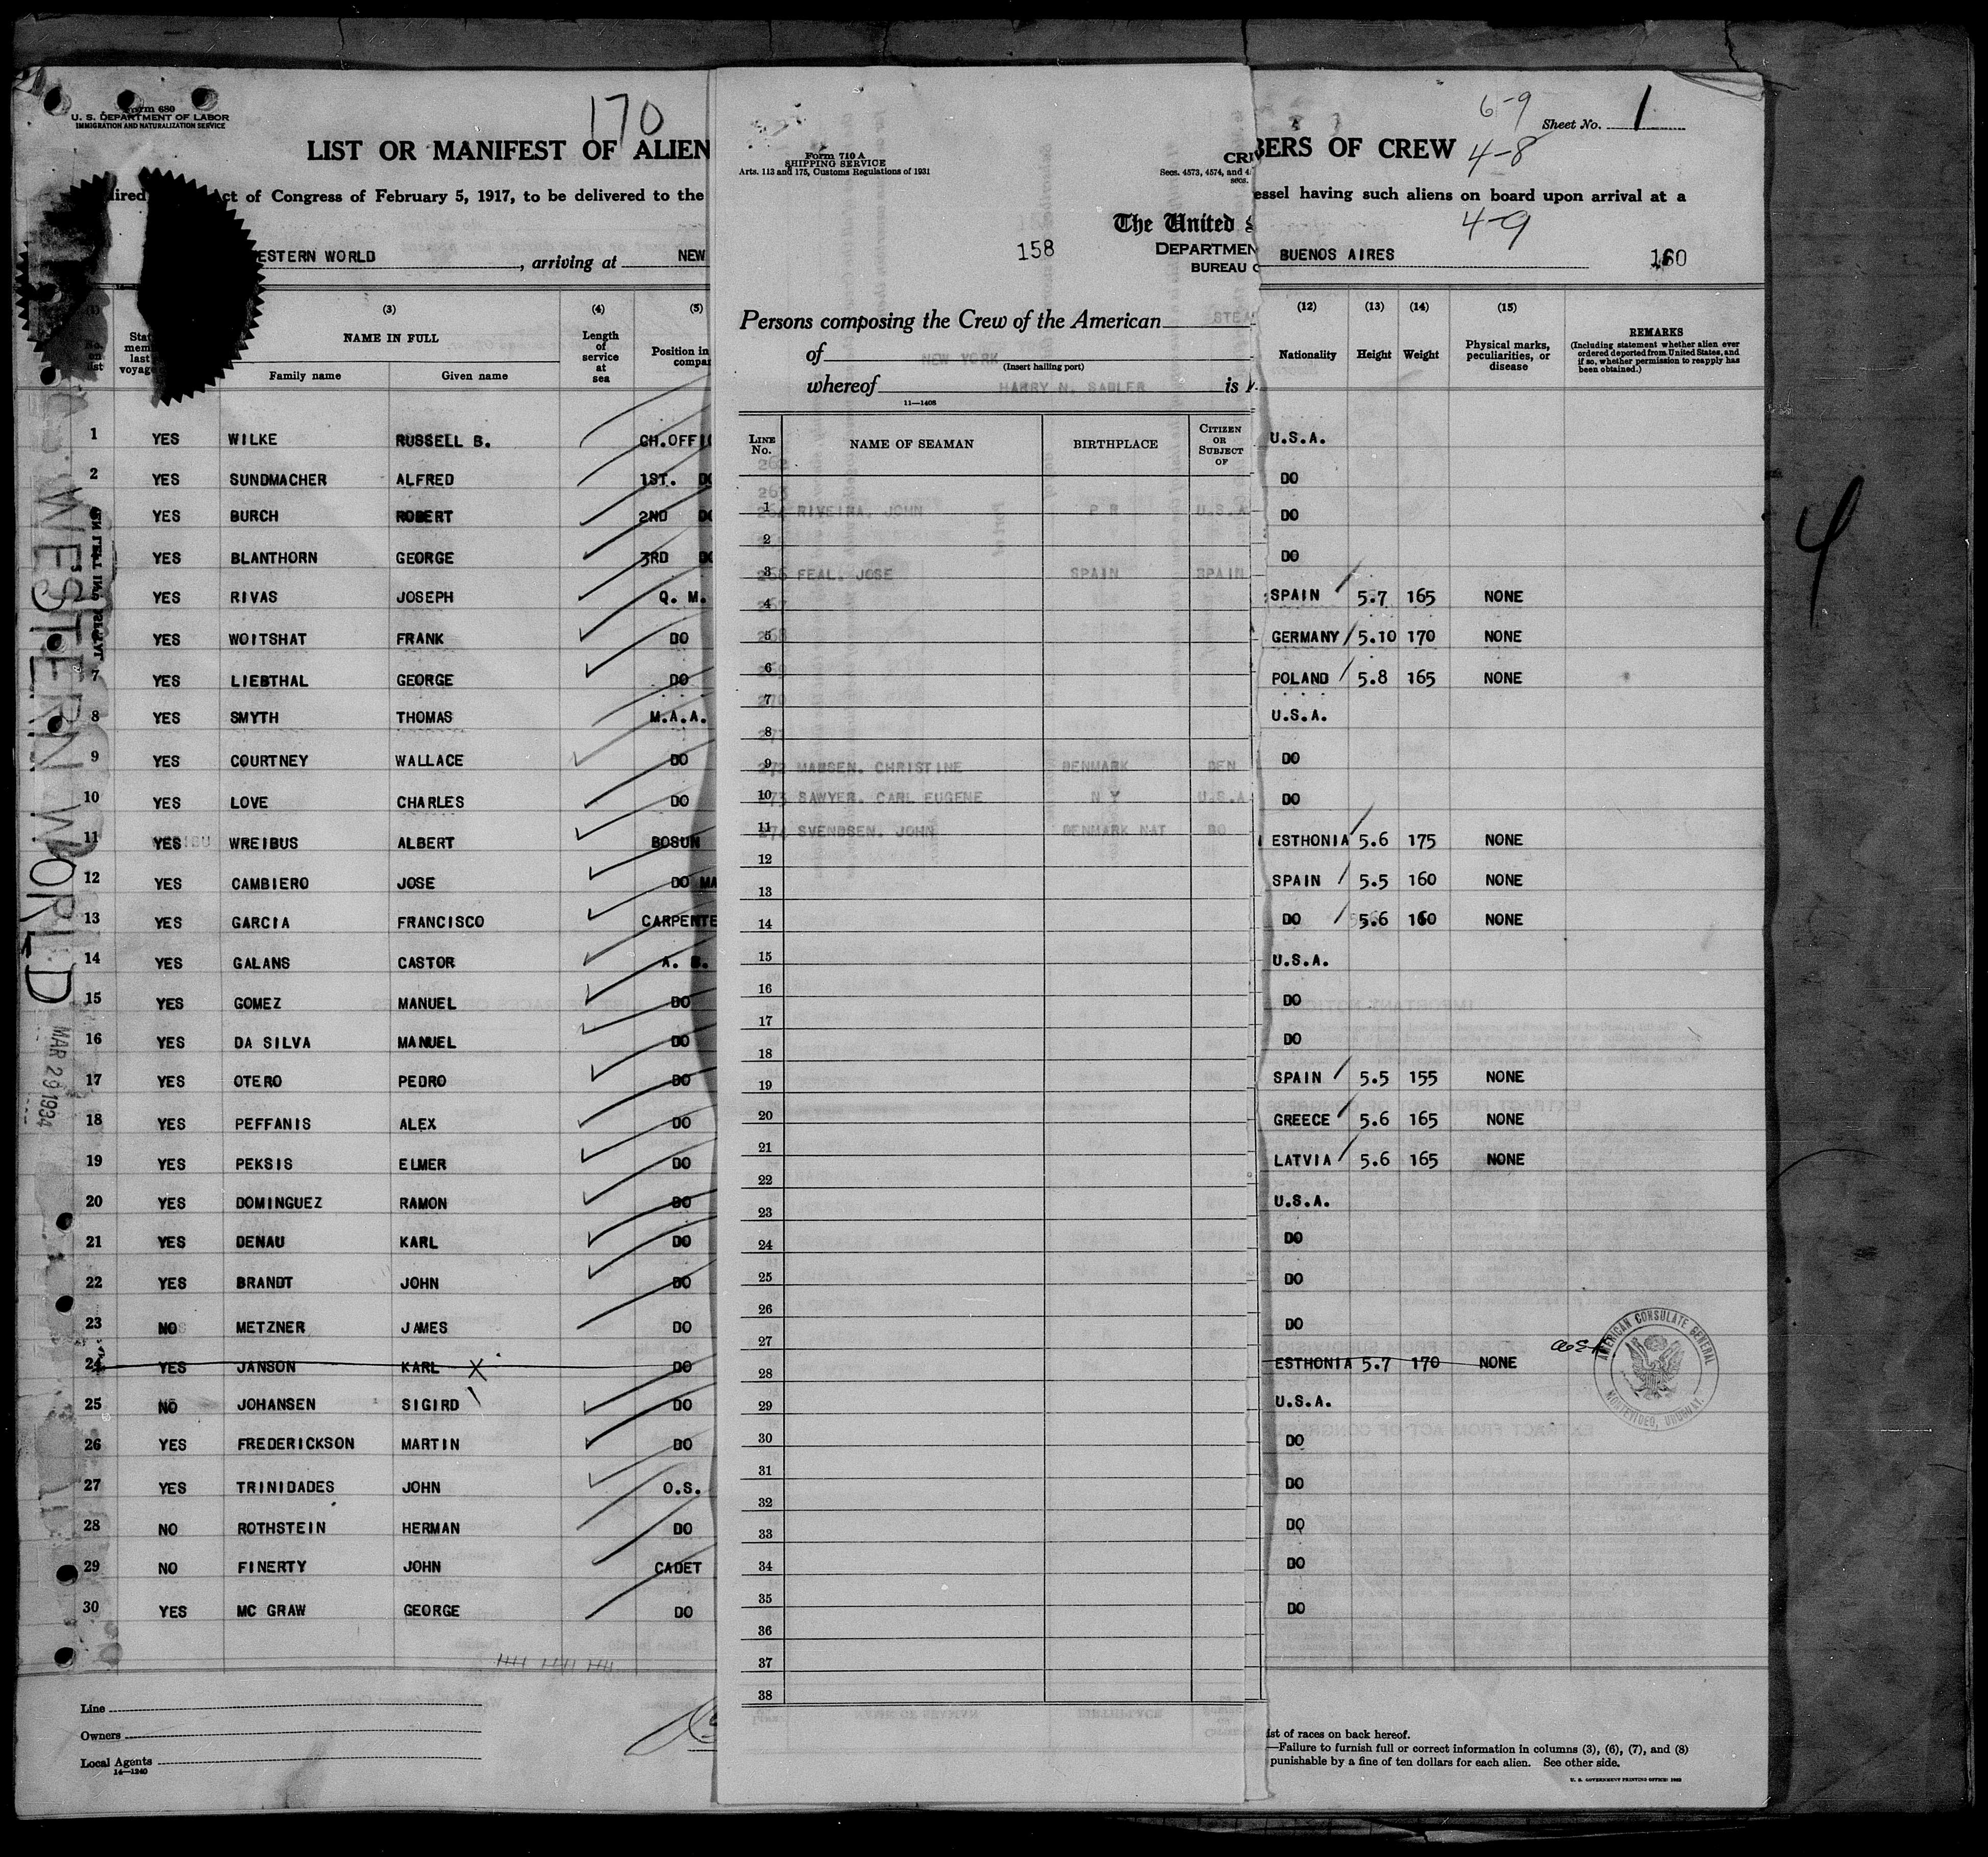 Form 680
U. S. DEPARTMENT OF LABOR
IMMIGRATION AND NATURALIZATION SERVICE
170
LIST OR MANIFEST OF ALIEN
ct of Congress of February 5, 1917, to be delivered to the
ESTERN WORLD , arriving at NEW
(3) (4) (5)
NAME IN FULL
Family name Given name
Length of service at sea
Position in
WESTERN WORLD
MAR 29 1934
1 YES WILKE RUSSELL B. CH.OFFI
2 YES SUNDMACHER ALFRED 1ST. DO
YES BURCH ROBERT 2ND DO
YES BLANTHORN GEORGE 3RD DO
YES RIVAS JOSEPH Q. M.
YES WOITSHAT FRANK DO
7 YES LIEBTHAL GEORGE DO
8 YES SMYTH THOMAS M.A.A.
9 YES COURTNEY WALLACE DO
10 YES LOVE CHARLES DO
11 YES WREIBUS ALBERT BOSUN
12 YES CAMBIERO JOSE DO MA
13 YES GARCIA FRANCISCO CARPENTE
14 YES GALANS CASTOR A. B.
15 YES GOMEZ MANUEL DO
16 YES DA SILVA MANUEL DO
17 YES OTERO PEDRO DO
18 YES PEFFANIS ALEX DO
19 YES PEKSIS ELMER DO
20 YES DOMINGUEZ RAMON DO
21 YES DENAU KARL DO
22 YES BRANDT JOHN DO
23 NO METZNER JAMES DO
24 YES JANSON KARL X DO
25 NO JOHANSEN SIGIRD DO
26 YES FREDERICKSON MARTIN DO
27 YES TRINIDADES JOHN O.S.
28 NO ROTHSTEIN HERMAN DO
29 NO FINERTY JOHN CADET
30 YES MC GRAW GEORGE DO
Line
Owners
Local Agents
14—1240
Form 710 A
SHIPPING SERVICE
Arts. 113 and 175, Customs Regulations of 1931
CRE
Secs. 4573, 4574, and 4
secs.
The United S
158
DEPARTMEN
BUREAU O
Persons composing the Crew of the American STEA
of NEW YORK
(Insert hailing port)
whereof HARRY N. SADLER is
11—1408
LINE No. NAME OF SEAMAN BIRTHPLACE CITIZEN OR SUBJECT OF
1 RIVEIRA, JOHN P R U.S.A
2
3 FEAL, JOSE SPAIN SPAIN
4
5
6
7
8
9 MADSEN, CHRISTINE DENMARK DEN
10 SAWYER, CARL EUGENE N Y U.S.A
11 SVENDSEN, JOHN DENMARK NAT DO
12
13
14
15
16
17
18
19
20
21
22
23
24
25
26
27
28
29
30
31
32
33
34
35
36
37
38
6-9
Sheet No. 1
BERS OF CREW
4-8
essel having such aliens on board upon arrival at a
4-9
BUENOS AIRES 160
(12) (13) (14) (15)
Nationality Height Weight
Physical marks, peculiarities, or disease
REMARKS
(Including statement whether alien ever ordered deported from United States, and if so, whether permission to reapply has been obtained.)
U.S.A.
DO
DO
DO
SPAIN 5.7 165 NONE
GERMANY 5.10 170 NONE
POLAND 5.8 165 NONE
U.S.A.
DO
DO
ESTHONIA 5.6 175 NONE
SPAIN 5.5 160 NONE
DO 5.6 160 NONE
U.S.A.
DO
DO
SPAIN 5.5 155 NONE
GREECE 5.6 165 NONE
LATVIA 5.6 165 NONE
U.S.A.
DO
DO
DO
ESTHONIA 5.7 170 NONE
AMERICAN CONSULATE GENERAL
MONTEVIDEO, URUGUAY.
U.S.A.
DO
DO
DO
DO
DO
ist of races on back hereof.
—Failure to furnish full or correct information in columns (3), (6), (7), and (8)
punishable by a fine of ten dollars for each alien. See other side.
U. S. GOVERNMENT PRINTING OFFICE: 1932
4